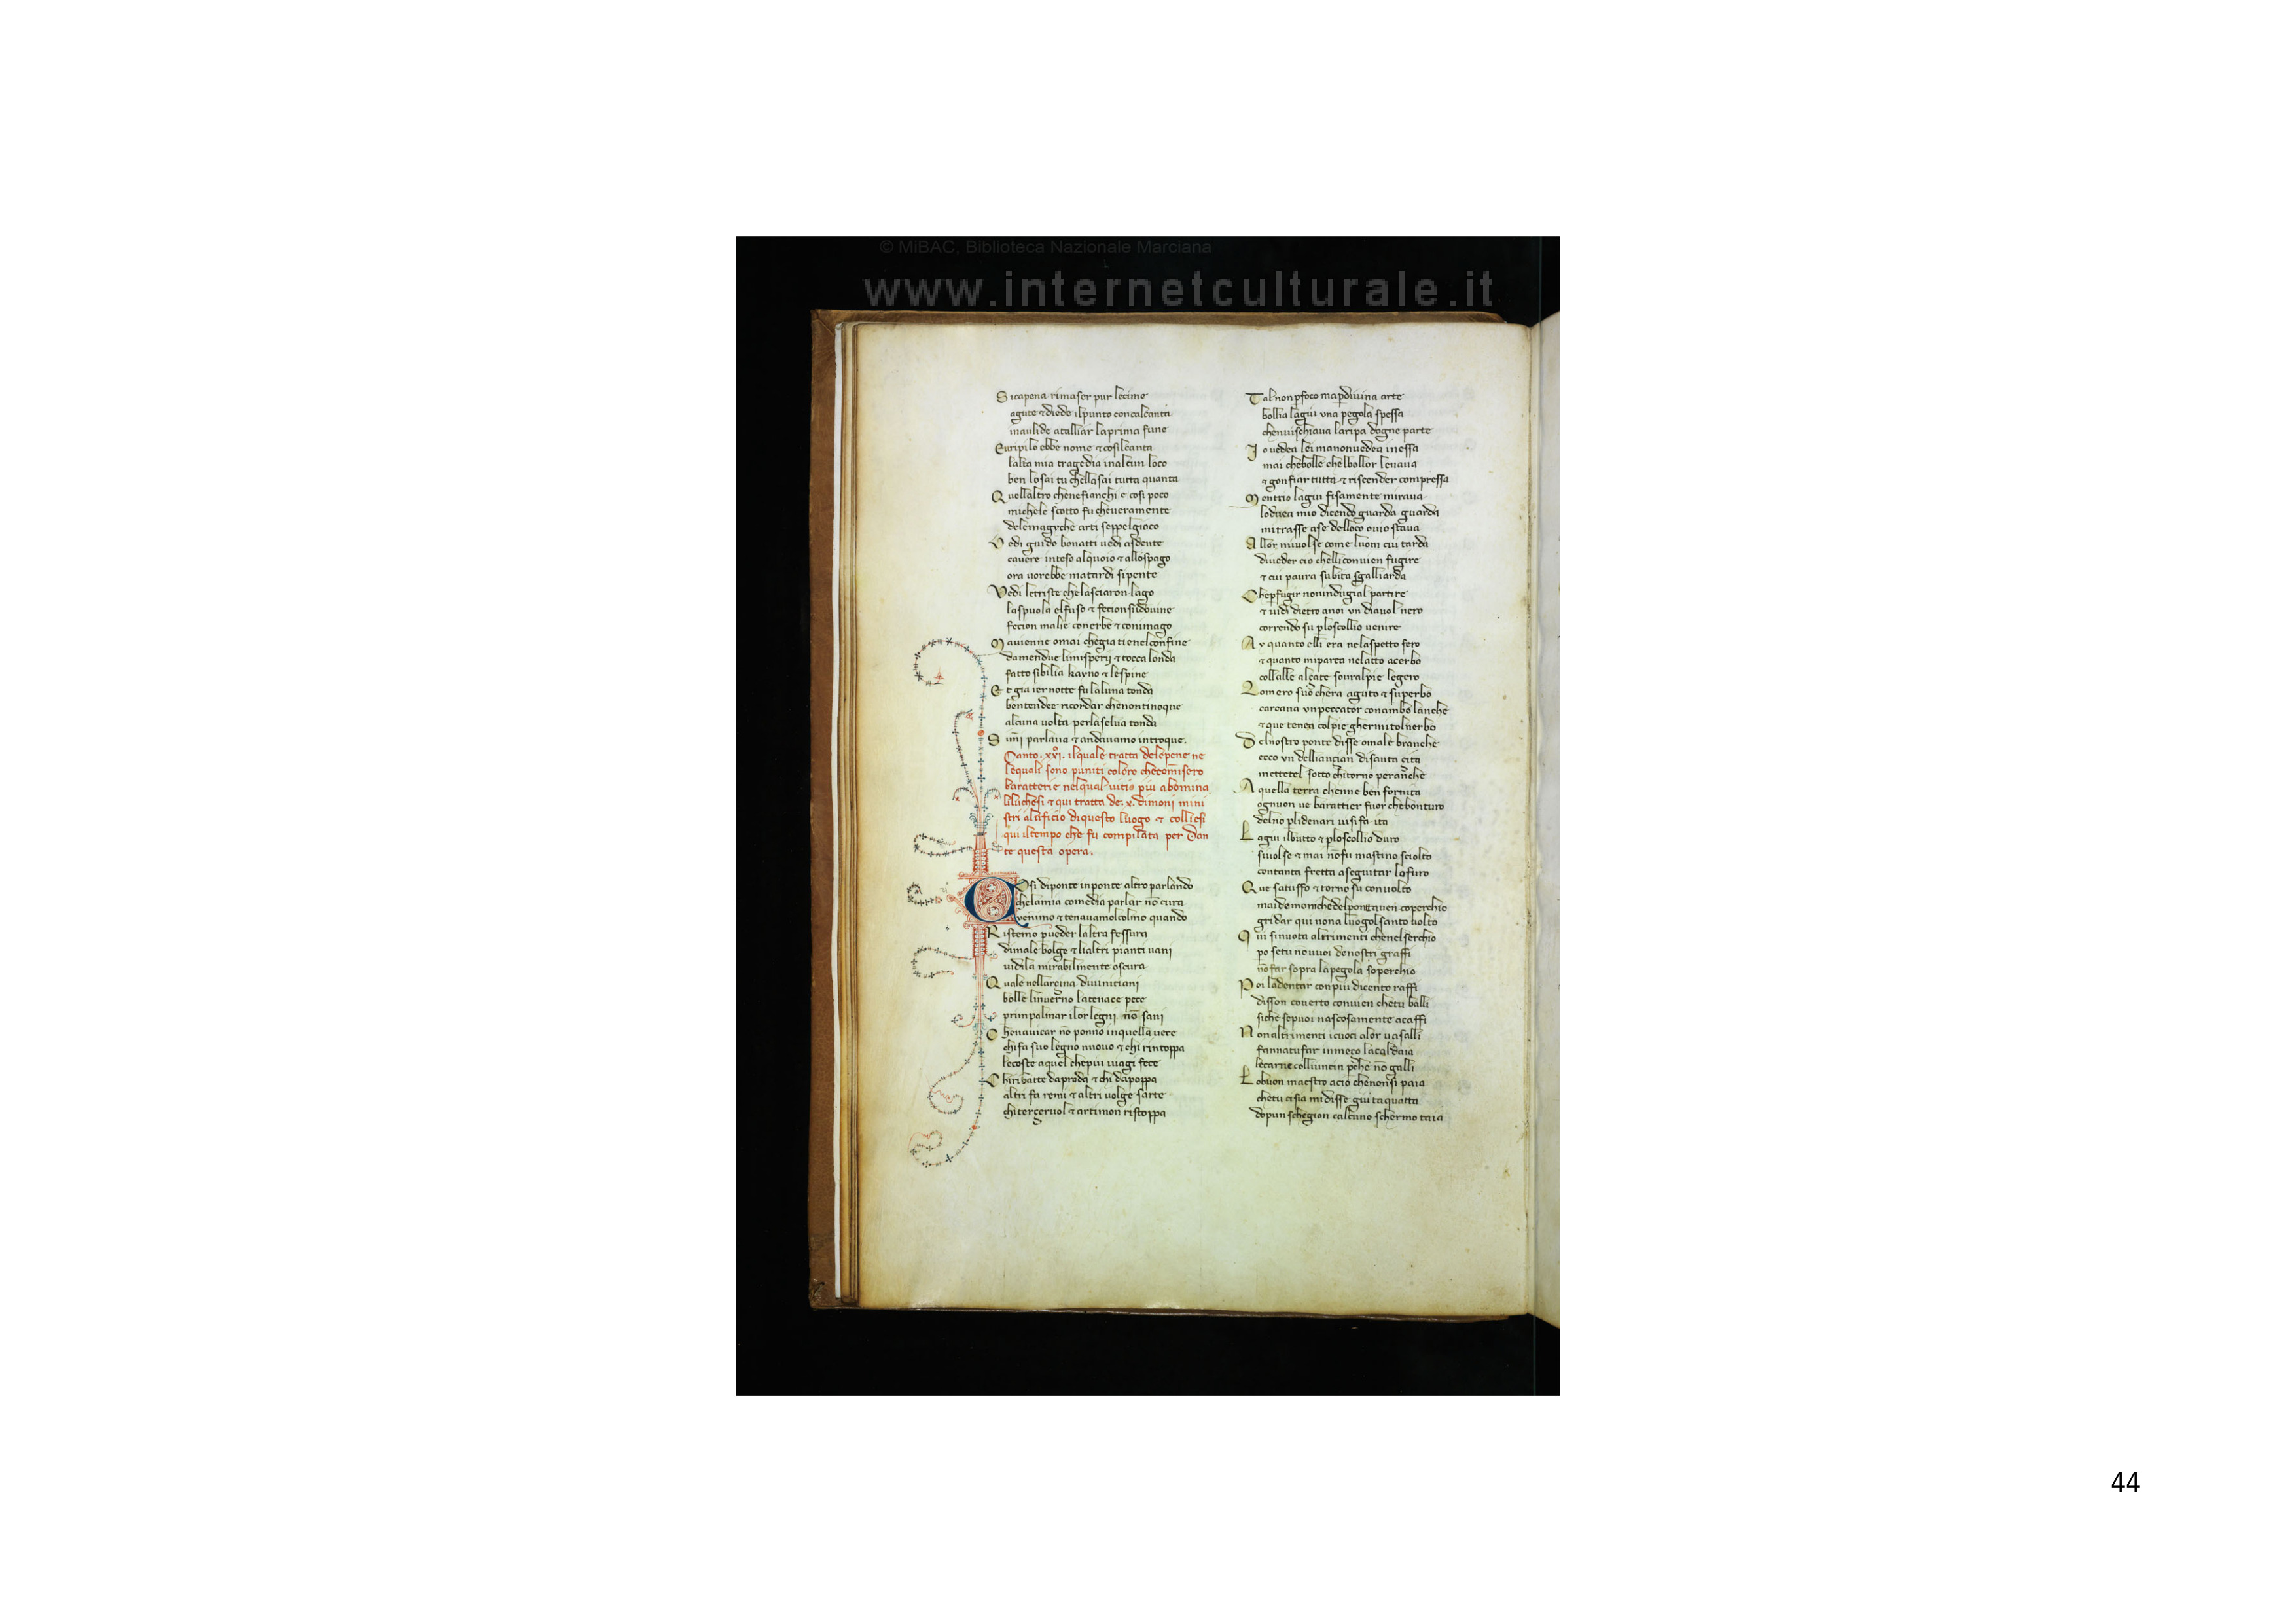 © MiBAC, Biblioteca Nazionale Marciana
www.internetculturale.it
Sicapena rimaser pur lecime
agute ⁊ diede ilpunto concalcanta
inaulide atalliar laprima fune
Euripilo ebbe nome ⁊ cosilcanta
lalta mia tragedia inalcun loco
ben losai tu chellasai tutta quanta
Quellaltro chenefianchi e cosi poco
michele scotto fu cheueramente
delemagyche arti seppelgioco
Vedi guido bonatti uedi asdente
cauere inteso alquoio ⁊ allospago
ora uorebbe matardi sipente
Vedi letriste chelasciaron lago
laspuola elfuso ⁊ fecionsidouine
fecion malie conerbe ⁊ conimago
Mauienne omai chegia tienelconfine
damendue limisperij ⁊ tocca londa
fatto sibilia kayno ⁊ lespine
Et gia iernotte fu laluna tonda
ben tendee ricordar chenontinoque
alcuna uolta perlaselua tonda
Simi parlaua ⁊ andauamo introque.
Canto .xxi. ilquale tratta delepene ne
lequali sono puniti coloro checomisero
baratterie nelqual uitio piu abomina
liluchesi ⁊ qui tratta de .x. dimoni mini
stri alaficio diquesto luogo ⁊ colliesi
qui iltempo che fu compilata per Dan
te questa opera.
Cosi diponte inponte altro parlando
chelamia comedia parlar nō cura
venimo ⁊ tenauamolcolmo quando
Ristemo pueder laltra fessura
dimale bolge ⁊ lialtri pianti uani
uidila mirabilmente oscura
Quale nellarcina diuinitiani
bolle linuerno latenace pece
primpalmar ilor legni nō sani
Chenauicar nō ponno inquella uece
chifa suo legno nuouo ⁊ chi rintoppa
lecoste aquel chepiu uiagi fece
Chiribatte daproda ⁊ chi dapoppa
altri fa remi ⁊ altri uolge sarte
chi terçeruol ⁊ artimon ristoppa
Tal non pfoco ma pdiuina arte
bollia lagiu vna pegola spessa
chenuischiaua laripa dogne parte
Io vedea lei manonuedea inessa
mai chebolle chelbollor leuaua
⁊ gonfiar tutta ⁊ riseender compressa
Mentrio lagiu fisamente miraua
loduca mio dicendo guarda guarda
mi trasse ase delloco ouio staua
Allor miuolse come luom cui tarda
diueder cio chelliconuien fugire
⁊ cui paura subita sgalliarda
Che pfugir nonindugial partire
⁊ uidi dietro anoi vn diauol nero
correndo su ploscollio uenire
Ay quanto elli era nelaspetto fero
⁊ quanto miparea nelatto acerbo
collalle alçate souralpie legero
Lomero suo chera aguto ⁊ superbo
carcaua vn peccator conambo lanche
⁊ que tenea colpie ghermitolnerbo
Delnostro ponte disse omale branche
ecco vn delliançian disanta çita
mettetel sotto chitorno peranche
Aquella terra chenne ben fornita
ognuon ue barattier fuor chebonturo
delno plidenari uisifa ita
Lagiu ilbutto ⁊ ploscollio duro
siuolse ⁊ mai nōfu mastino sciolto
contanta fretta aseguitar lofuro
Que satuffo ⁊ torno su conuolto
maidemoni chedelponte auen coperchio
gridar qui nona luogolsanto uolto
Qui sinuota altrimenti chenelserchio
po setu nōuuoi denostri graffi
nōfar sopra lapegola soperchio
Poi ladentar conpiu dicento raffi
disson couerto conuien chetu balli
siche sepuoi nascosamente acaffi
Non altrimenti icuoci alor uasalli
fannatufar inmeço lacaldaia
lecarne colliuncin pche nō galli
Lobuon maestro acio chenonsi paia
chetu cisia midisse giu taquatta
dopun schegion calcuno schermo taia
44